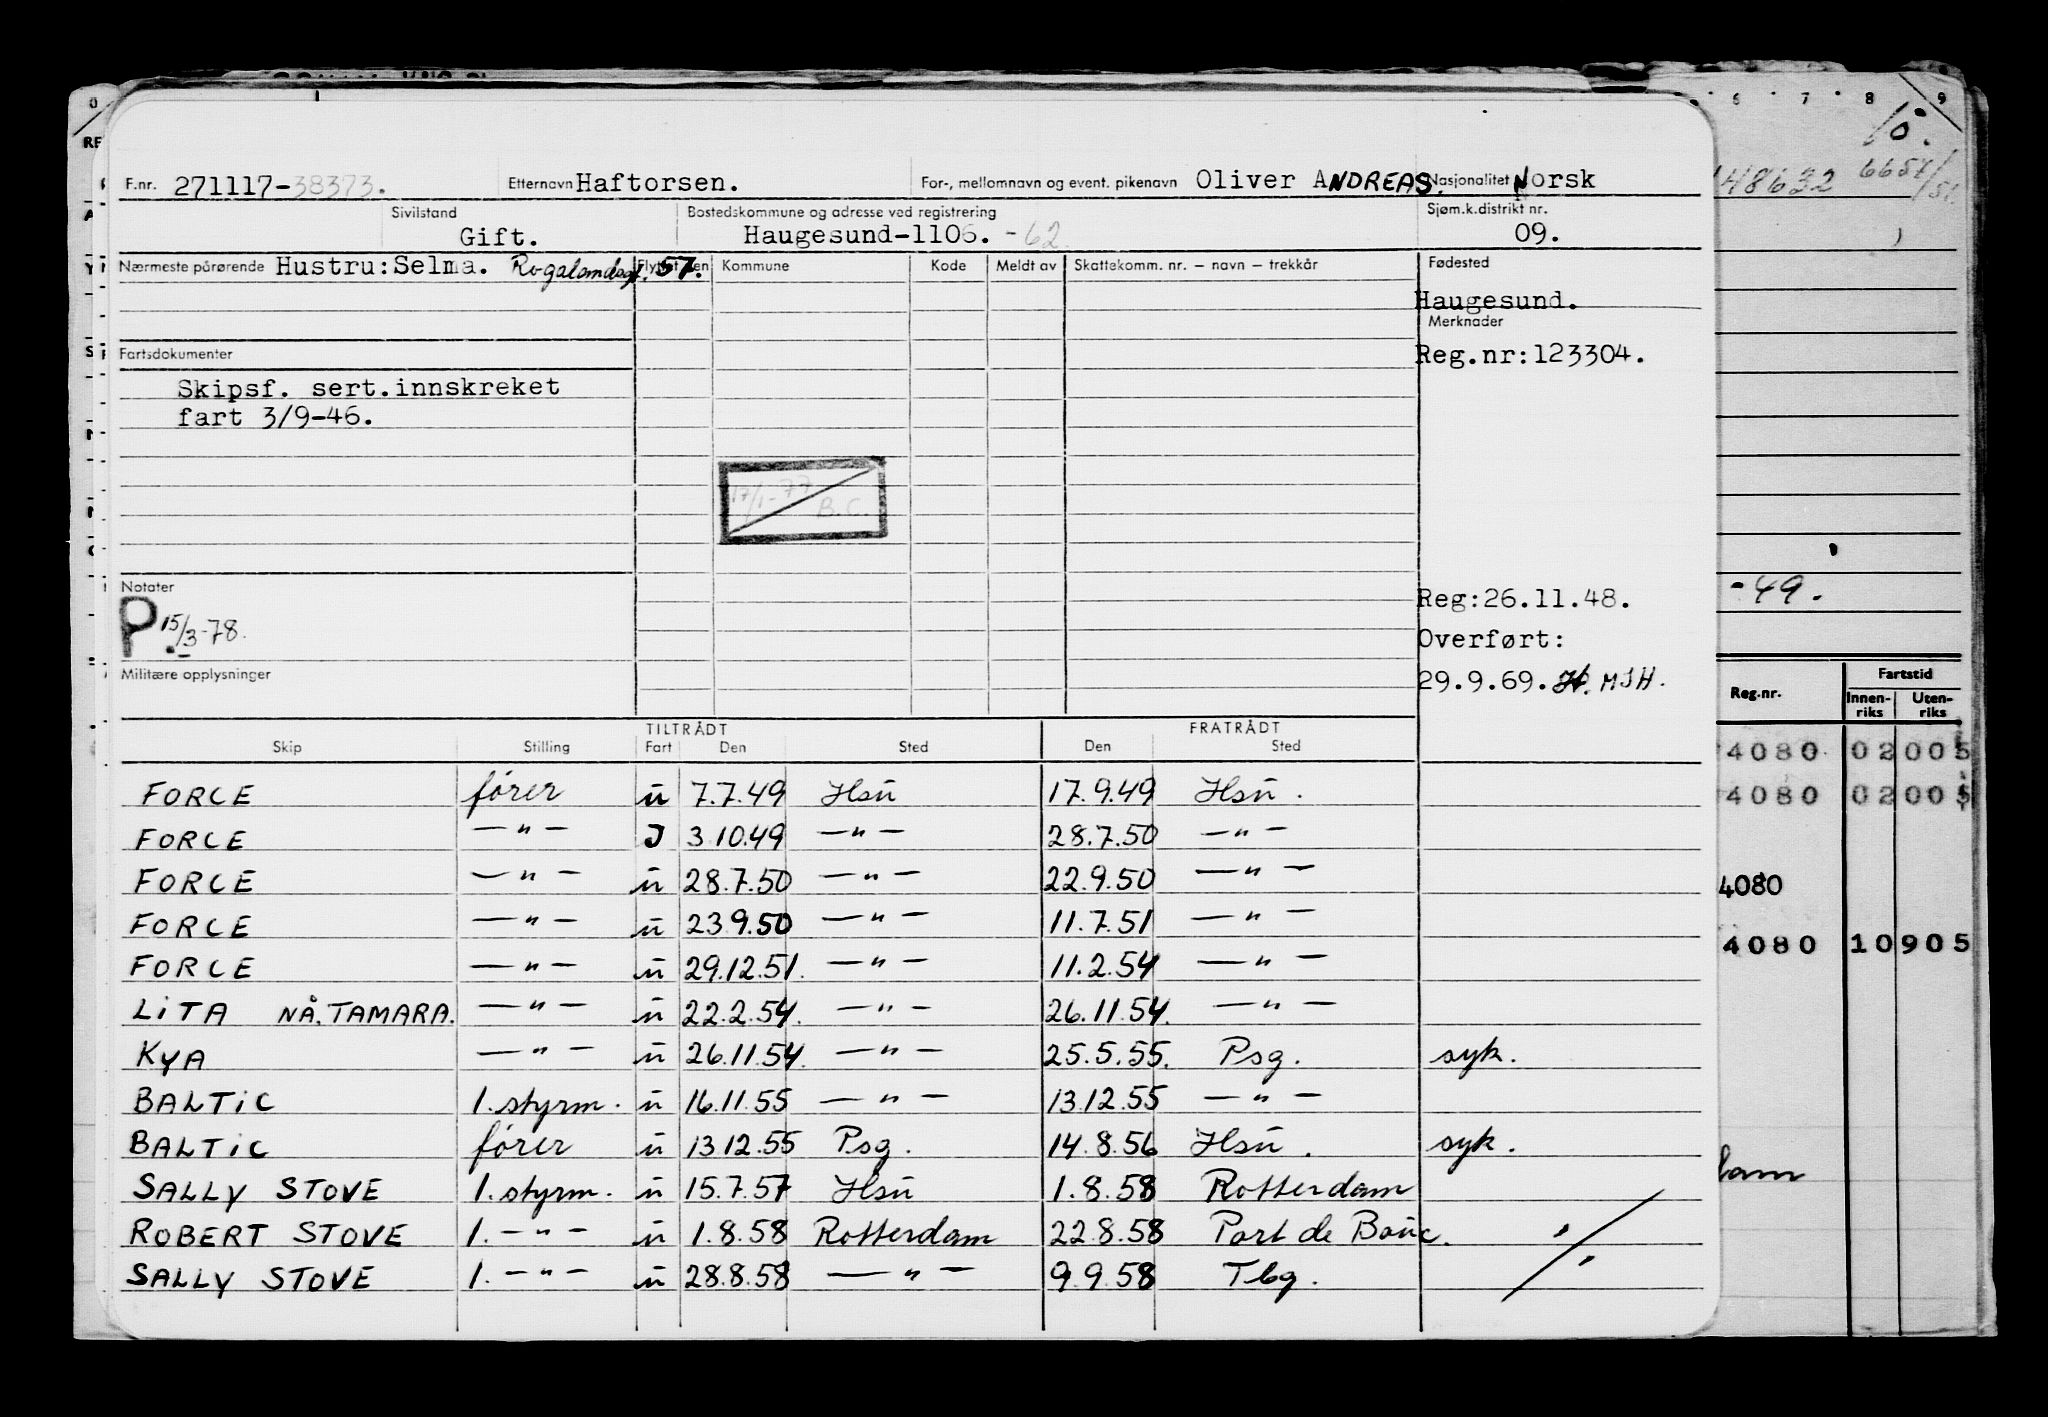 6 7 8 9
10.
F.nr. 271117-38373. Etternavn Haftorsen. For-, mellomnavn og event. pikenavn Oliver ANDREAS. Nasjonalitet Norsk
148632 6657/51.
Sivilstand Bostedskommune og adresse ved registrering Sjøm.k.distrikt nr.
Gift. Haugesund-1106. -62. 09.
Nærmeste pårørende Hustru:Selma. Rogalandsgt. 57. Flyttet den Kommune Kode Meldt av Skattekomm. nr. – navn – trekkår Fødested
Haugesund.
Merknader
Fartsdokumenter Reg.nr:123304.
Skipsf. sert.innskreket
fart 3/9-46.
17/1-77 B.C.
Notater Reg:26.11.48. -49.
P. 15/3-78.
Overført:
Militære opplysninger 29.9.69. H. MSH.
Reg.nr. Fartstid
Innen-riks Uten-riks
TILTRÅDT FRATRÅDT
Skip Stilling Fart Den Sted Den Sted
4080 02 005
FORCE fører u 7.7.49 Hsu 17.9.49 Hsu. 4080 02 005
FORCE —"— J 3.10.49 —"— 28.7.50 —"—
FORCE —"— u 28.7.50 —"— 22.9.50 —"— 4080
FORCE —"— u 23.9.50 —"— 11.7.51 —"— 4080 10 905
FORCE —"— u 29.12.51. —"— 11.2.54 —"—
LITA NÅ. TAMARA. —"— u 22.2.54. —"— 26.11.54. —"—
KYA —"— u 26.11.54. —"— 25.5.55. Psg. syk.
BALTIC 1. styrm. u 16.11.55 —"— 13.12.55 —"—
BALTIC fører u 13.12.55 Psg. 14.8.56 Hsu. syk.
SALLY STOVE 1. styrm. u 15.7.57 Hsu 1.8.58 Rotterdam
ROBERT STOVE 1. —"— u 1.8.58 Rotterdam 22.8.58 Port de Bouc.
SALLY STOVE 1. —"— u 28.8.58 —"— 9.9.58 Tbg.